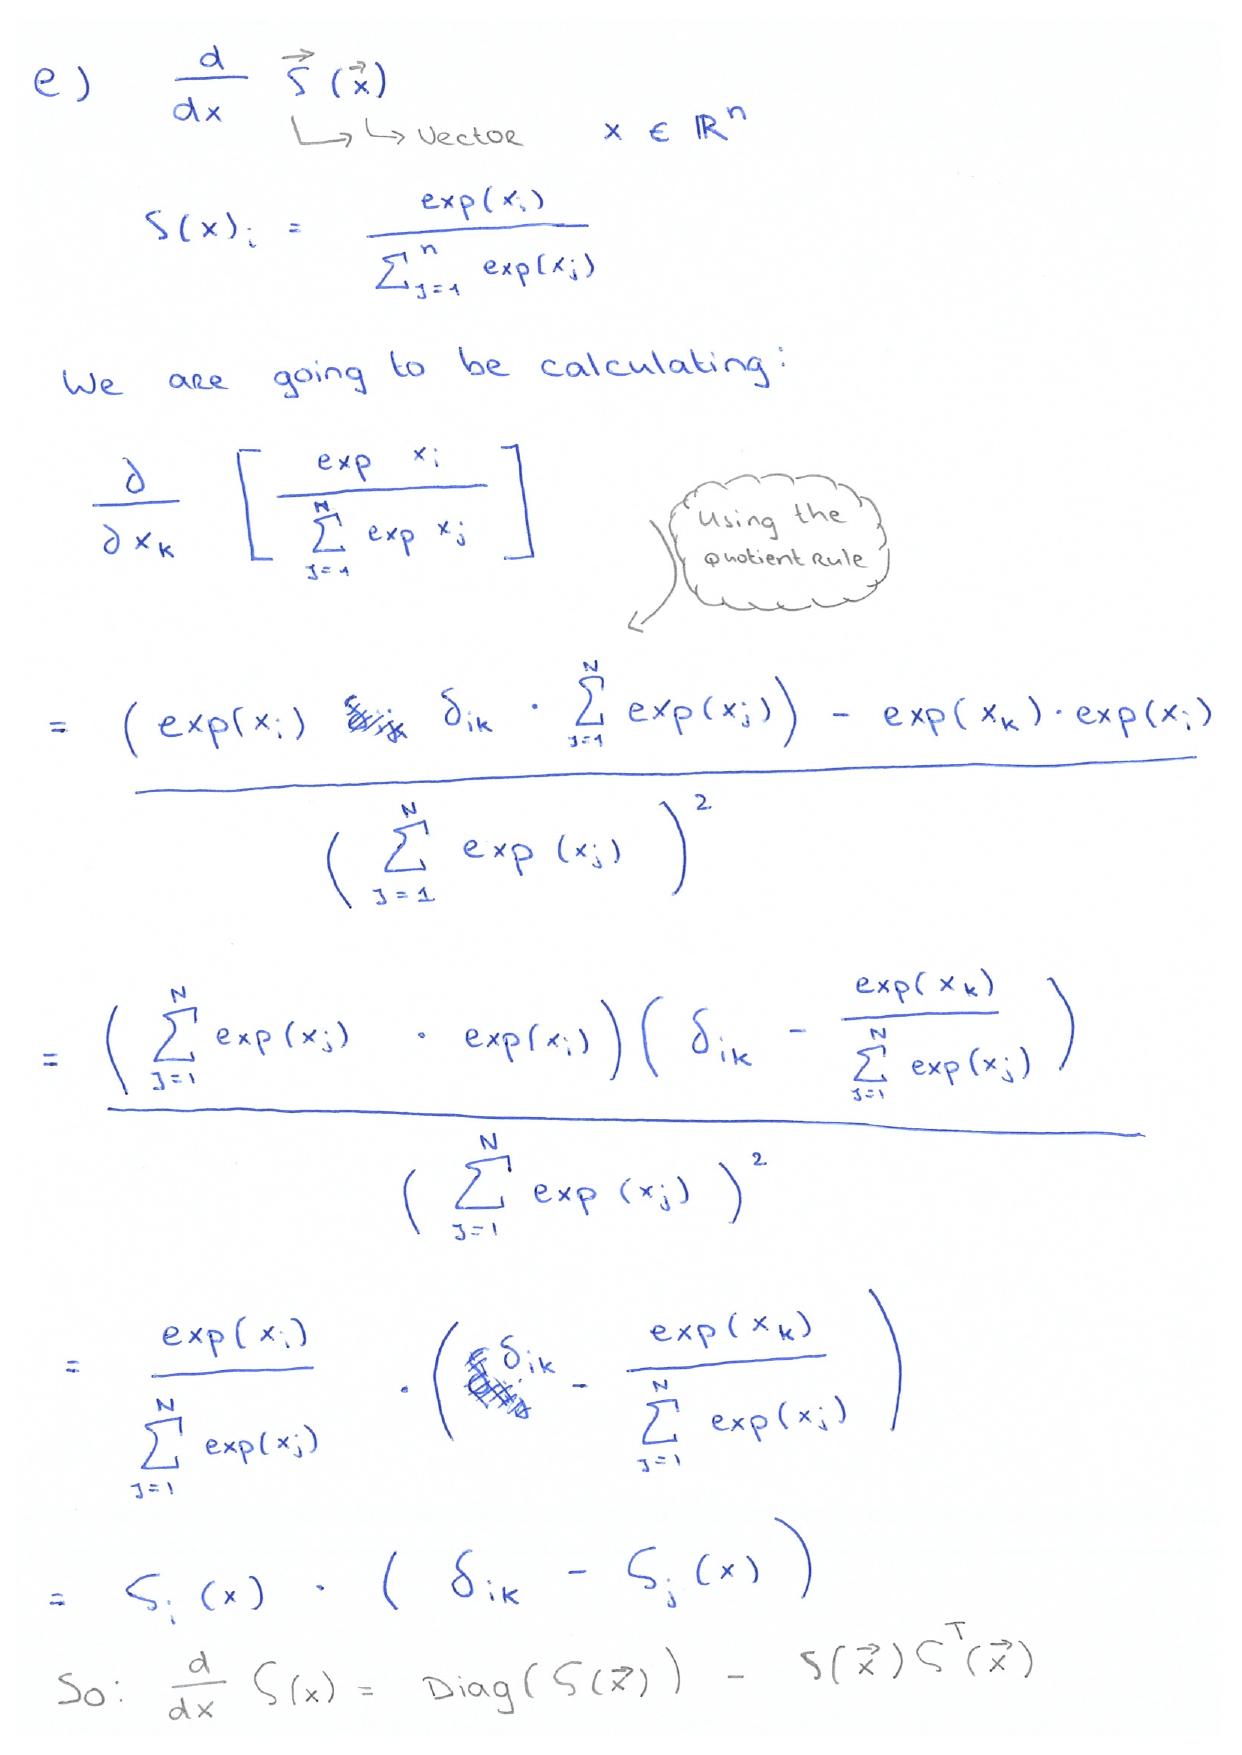 e) d/dx S⃗(x⃗)
↳ ↳ Vector x ∈ ℝⁿ
S(x)ᵢ = exp(xᵢ) / ∑ⁿ_{j=1} exp(xⱼ)
We are going to be calculating:
∂/∂xₖ [ exp xᵢ / ∑ᴺ_{j=1} exp xⱼ ]
Using the
Quotient Rule
= ( (exp(xᵢ) δᵢₖ · ∑ᴺ_{j=1} exp(xⱼ)) - exp(xₖ) · exp(xᵢ) ) / ( ∑ᴺ_{j=1} exp(xⱼ) )²
= ( ∑ᴺ_{j=1} exp(xⱼ) · exp(xᵢ) ) ( δᵢₖ - exp(xₖ) / ∑ᴺ_{j=1} exp(xⱼ) ) / ( ∑ᴺ_{j=1} exp(xⱼ) )²
= exp(xᵢ) / ∑ᴺ_{j=1} exp(xⱼ) · ( δᵢₖ - exp(xₖ) / ∑ᴺ_{j=1} exp(xⱼ) )
= Sᵢ(x) · ( δᵢₖ - Sⱼ(x) )
So: d/dx S(x) = Diag(S(x⃗)) - S(x⃗)Sᵀ(x⃗)